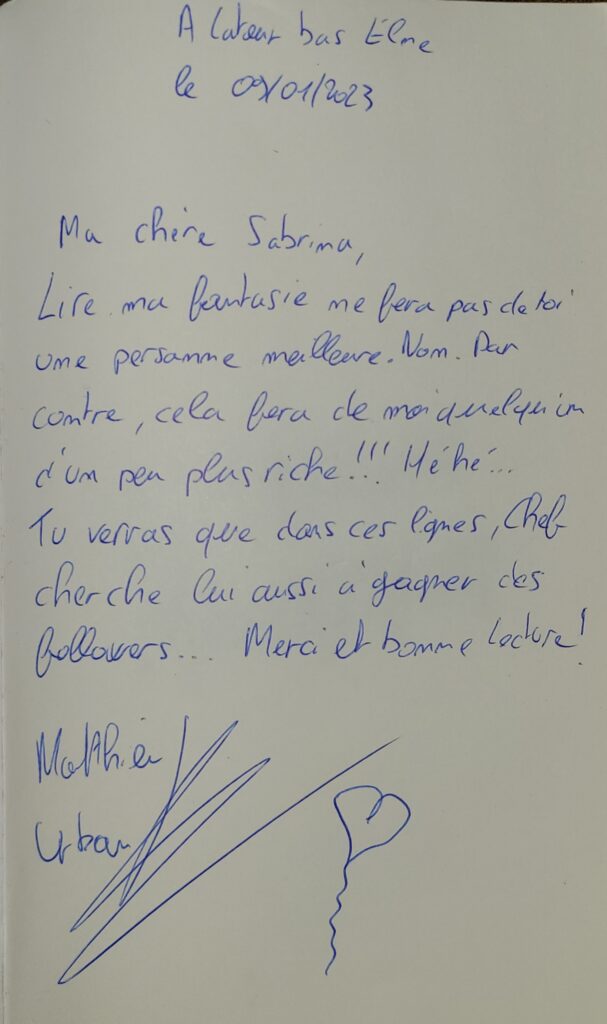 A Latour bas Elne
le 09/01/2023
Ma chère Sabrina,
Lire ma fantasie ne fera pas de toi
une personne meilleure. Non. Par
contre, cela fera de moi quelqu'un
d'un peu plus riche!!! Héhé...
Tu verras que dans ces lignes, Chef
cherche lui aussi à gagner des
followers... Merci et bonne lecture!
Matthieu
Urban